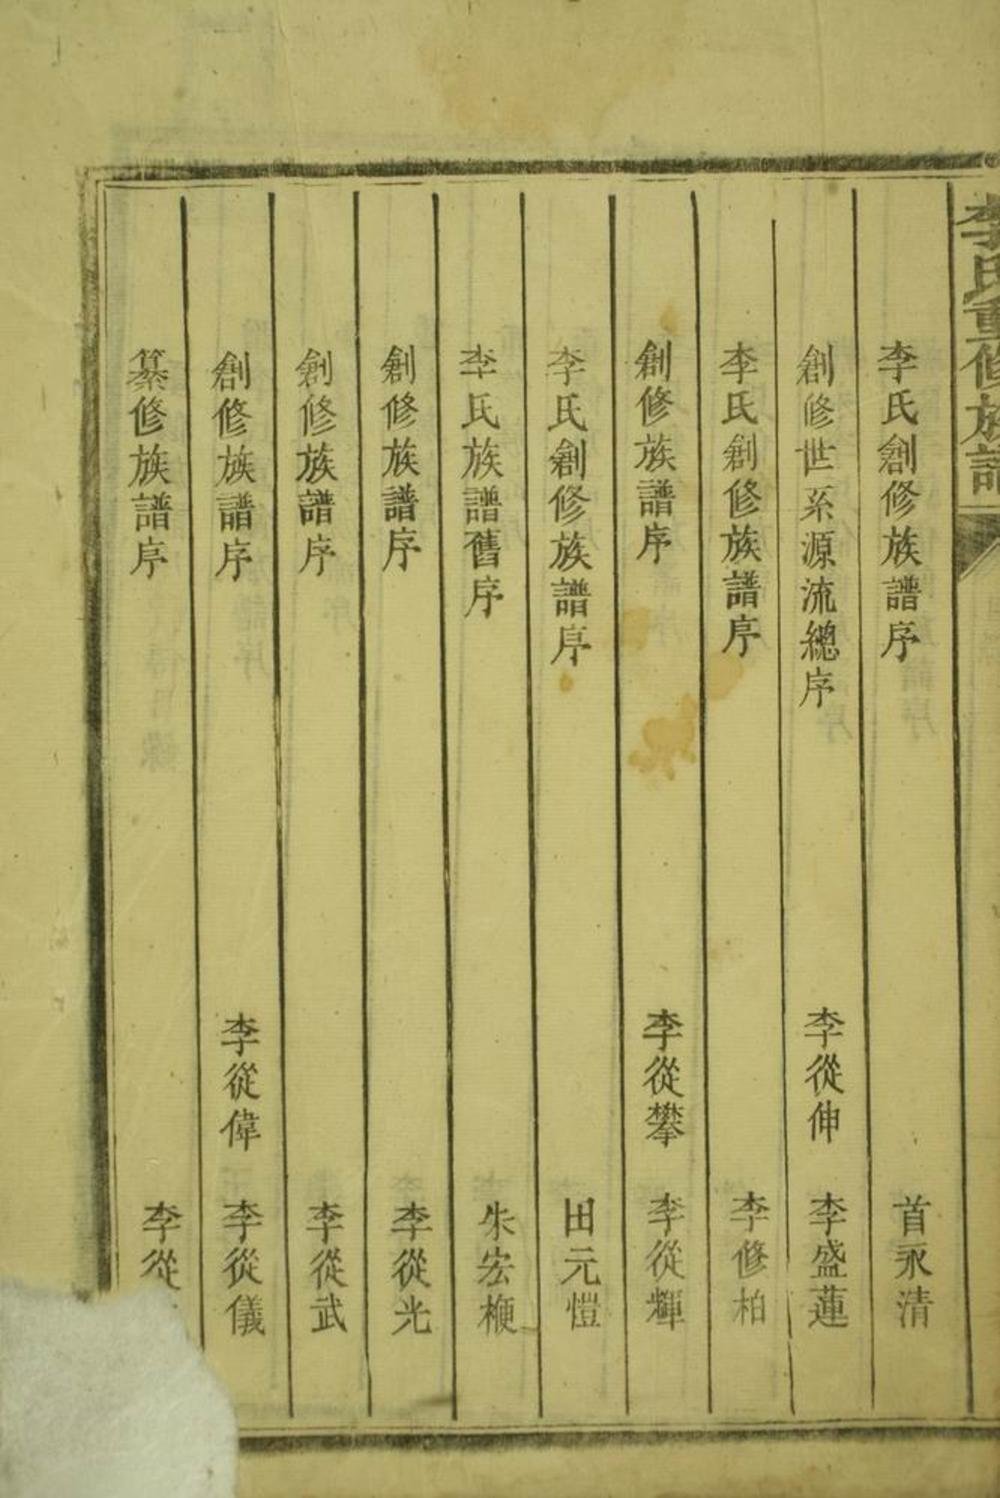 李氏重修族譜
李氏創修族譜序 首永清
創修世系源流總序 李從伸 李盛蓮
李氏創修族譜序 李修柏
創修族譜序 李從攀 李從輝
李氏創修族譜序 田元愷
李氏族譜舊序 朱宏楩
創修族譜序 李從光
創修族譜序 李從武
創修族譜序 李從偉 李從儀
纂修族譜序 李從